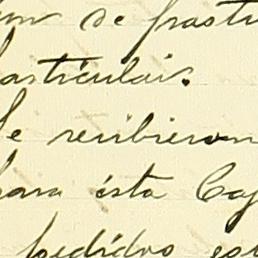 de frasti
particular.
Se recibieron
para ésta Caj
pedidos es